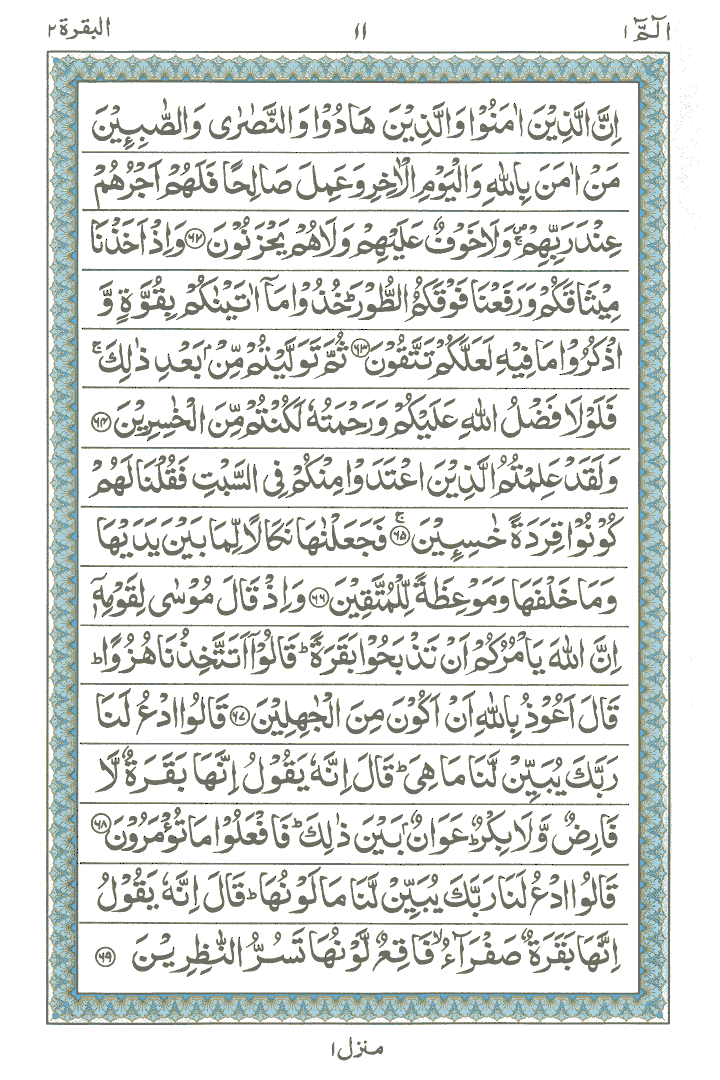 الٓمّٓ ١ ١١ البقرة ٢
اِنَّ الَّذِيْنَ اٰمَنُوْا وَالَّذِيْنَ هَادُوْا وَالنَّصٰرٰى وَالصّٰبِـِٕيْنَ
مَنْ اٰمَنَ بِاللّٰهِ وَالْيَوْمِ الْاٰخِرِ وَعَمِلَ صَالِحًا فَلَهُمْ اَجْرُهُمْ
عِنْدَ رَبِّهِمْ ۚ وَلَا خَوْفٌ عَلَيْهِمْ وَلَا هُمْ يَحْزَنُوْنَ ﴿۶۲﴾ وَاِذْ اَخَذْنَا
مِيْثَاقَكُمْ وَرَفَعْنَا فَوْقَكُمُ الطُّوْرَ ؕ خُذُوْا مَاۤ اٰتَيْنٰكُمْ بِقُوَّةٍ وَّ
اذْكُرُوْا مَا فِيْهِ لَعَلَّكُمْ تَتَّقُوْنَ ﴿۶۳﴾ ثُمَّ تَوَلَّيْتُمْ مِّنْۢ بَعْدِ ذٰلِكَ ۚ
فَلَوْلَا فَضْلُ اللّٰهِ عَلَيْكُمْ وَرَحْمَتُهٗ لَكُنْتُمْ مِّنَ الْخٰسِرِيْنَ ﴿۶۴﴾
وَلَقَدْ عَلِمْتُمُ الَّذِيْنَ اعْتَدَوْا مِنْكُمْ فِى السَّبْتِ فَقُلْنَا لَهُمْ
كُوْنُوْا قِرَدَةً خٰسِـِٕيْنَ ۚ﴿۶۵﴾ فَجَعَلْنٰهَا نَكَالًا لِّمَا بَيْنَ يَدَيْهَا
وَمَا خَلْفَهَا وَمَوْعِظَةً لِّلْمُتَّقِيْنَ ﴿۶۶﴾ وَاِذْ قَالَ مُوْسٰى لِقَوْمِهٖۤ
اِنَّ اللّٰهَ يَاْمُرُكُمْ اَنْ تَذْبَحُوْا بَقَرَةً ؕ قَالُوْۤا اَتَتَّخِذُنَا هُزُوًا ؕ
قَالَ اَعُوْذُ بِاللّٰهِ اَنْ اَكُوْنَ مِنَ الْجٰهِلِيْنَ ﴿۶۷﴾ قَالُوا ادْعُ لَنَا
رَبَّكَ يُبَيِّنْ لَّنَا مَا هِىَ ؕ قَالَ اِنَّهٗ يَقُوْلُ اِنَّهَا بَقَرَةٌ لَّا
فَارِضٌ وَّلَا بِكْرٌ ؕ عَوَانٌۢ بَيْنَ ذٰلِكَ ؕ فَافْعَلُوْا مَا تُؤْمَرُوْنَ ﴿۶۸﴾
قَالُوا ادْعُ لَنَا رَبَّكَ يُبَيِّنْ لَّنَا مَا لَوْنُهَا ؕ قَالَ اِنَّهٗ يَقُوْلُ
اِنَّهَا بَقَرَةٌ صَفْرَآءُ ۙ فَاقِعٌ لَّوْنُهَا تَسُرُّ النّٰظِرِيْنَ ﴿۶۹﴾
منزل ١